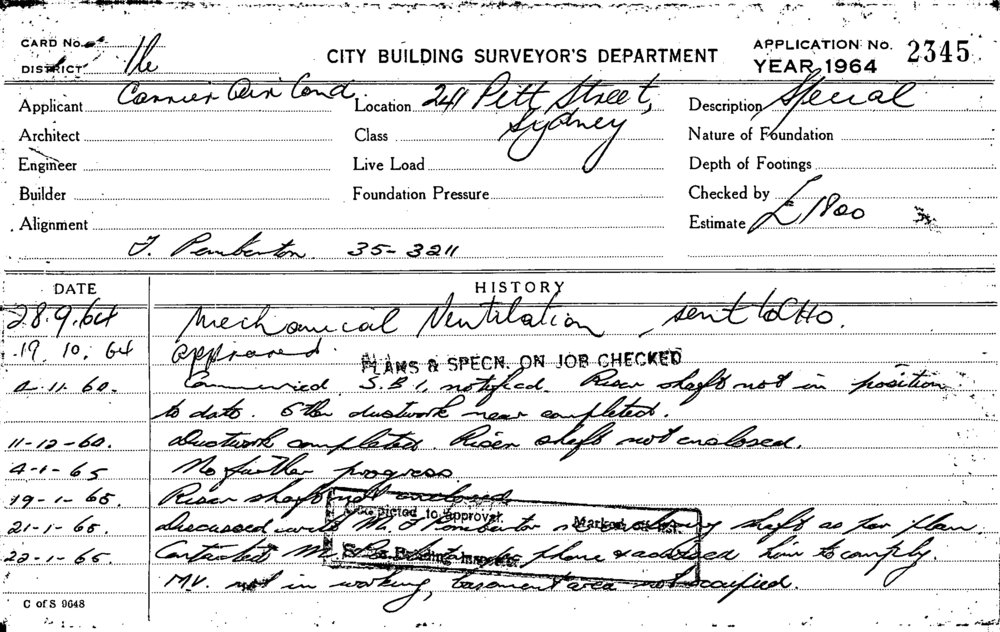 CARD No.
DISTRICT Ile
CITY BUILDING SURVEYOR'S DEPARTMENT
APPLICATION No. 2345
YEAR 1964
Applicant Carrier Air Cond.
Location 249 Pitt Street, Sydney
Description Special
Architect
Class
Nature of Foundation
Engineer
Live Load
Depth of Footings
Builder
Foundation Pressure
Checked by
Alignment
Estimate £1800
J. Pemberton 35-3211
DATE HISTORY
28.9.64 Mechanical Ventilation sent to CHO.
19.10.64 approved.
PLANS & SPECN. ON JOB CHECKED
4-11-60. Commenced S.B.I. notified. Riser shaft not in position
to date. Other ductwork near completed.
11-12-60. Ductwork completed. Riser shaft not enclosed.
4-1-65 No further progress
19-1-65. Riser shaft not enclosed
21-1-65. Discussed with Mr. J Pemberton shaft as per plan.
22-1-65. Contacted Mr. phone & advised him to comply.
M.V. not in working, basement area not occupied.
to approval.
Building Inspector
C of S 9648